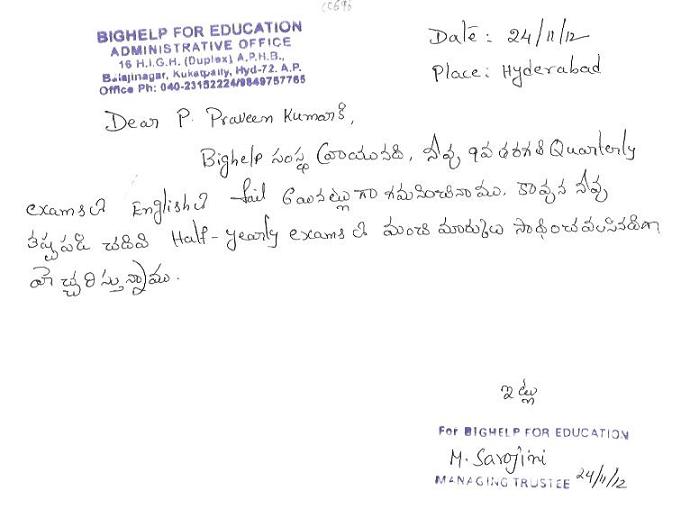 CC696
BIGHELP FOR EDUCATION
ADMINISTRATIVE OFFICE
16 H.I.G.H. (Duplex) A.P.H.B.,
Balajinagar, Kukatpally, Hyd-72. A.P.
Office Ph: 040-23152224/9849757765
Date: 24/11/12
Place: Hyderabad
Dear P. Praveen Kumarకి,
Bighelp సంస్థ వ్రాయునది, నీవు 9వ తరగతి Quarterly
examsలో Englishలో fail అయినట్లుగా గమనించినాము. కావున నీవు
తప్పపడి చదివి Half-yearly examsలో మంచి మార్కులు సాధించవలసినదిగా
హెచ్చరిస్తున్నాము.
ఇట్లు
For BIGHELP FOR EDUCATION
M. Sarojini
MANAGING TRUSTEE 24/11/12